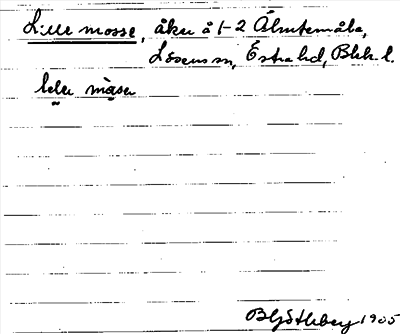 L:lle mosse, åker å 1-2 Älmtemåla,
Lösens sn, Östra hd, Blek. l.
lelle måser
B Götleberg 1905